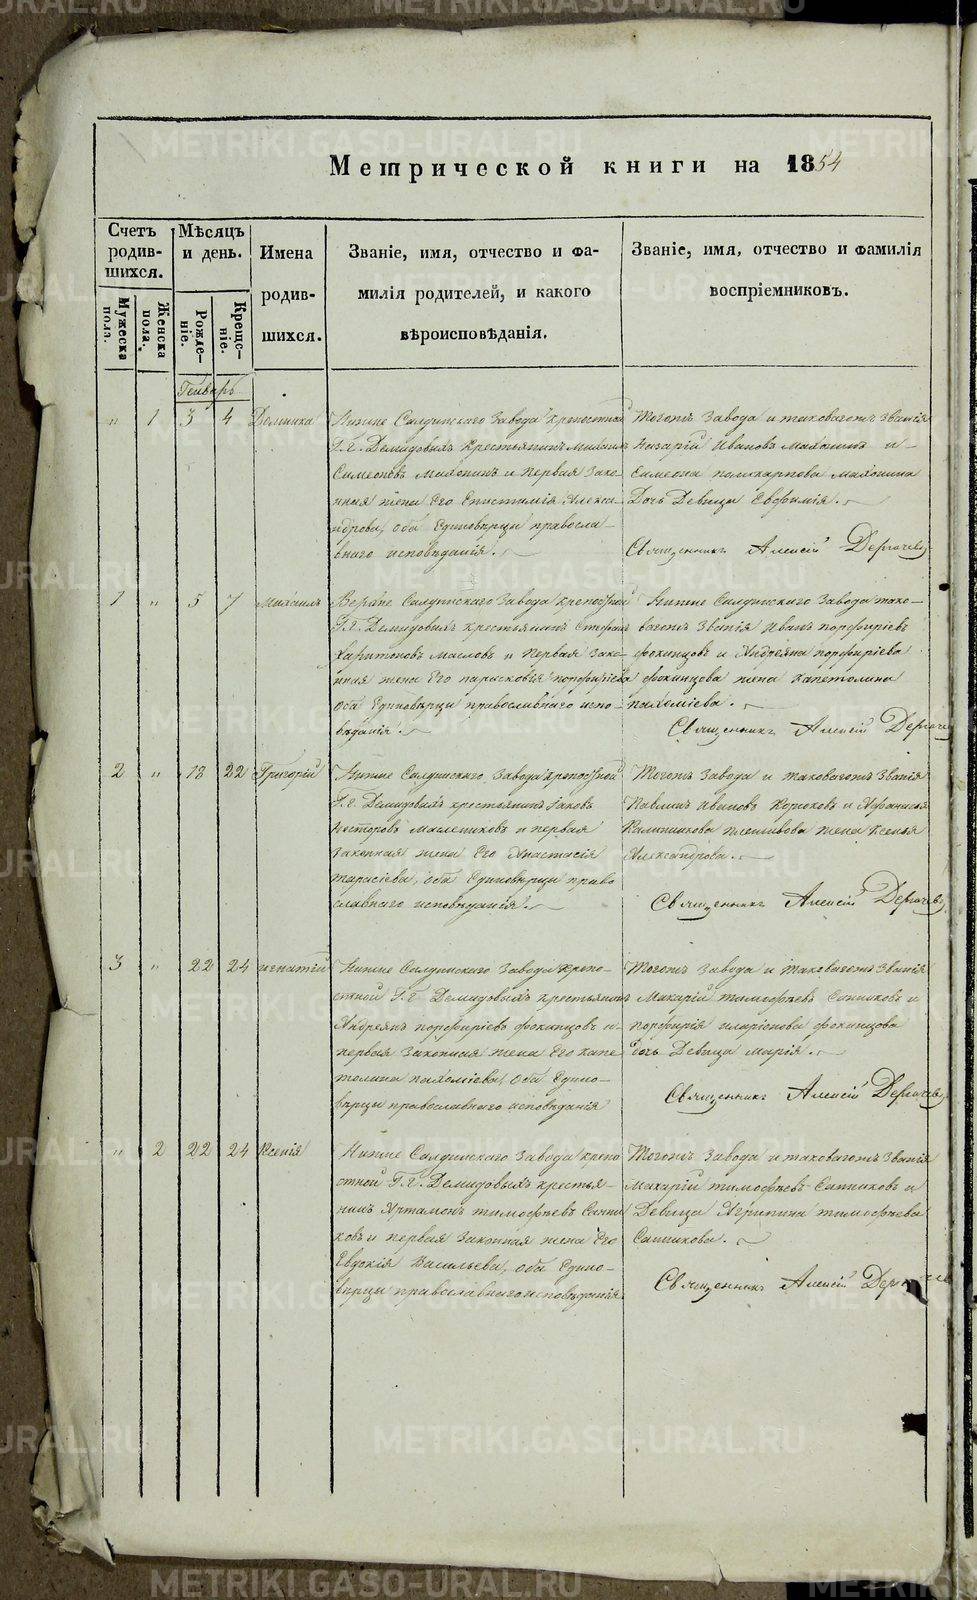 Метрической книги на 1854
Счетъ родив-шихся.
Мужеска пола.
Женска пола.
Мѣсяцъ и день.
Рожде-ніе.
Креще-ніе.
Имена
родив-
шихся.
Званіе, имя, отчество и фа-
милія родителей, и какого
вѣроисповѣданія.
Званіе, имя, отчество и фамилія
воспріемниковъ.
Генварь
" 1 3 4 Домника
Нижне Салдинскаго Завода крепостной
Г.г. Демидовыхъ крестьянинъ Михаилъ
Симеоновъ Махонинъ и первая Зако-
нная жена Его Епистимія Алекса-
ндрова, оба Единовѣрцы правосла-
внаго исповѣданія.
Тогожъ Завода и таковагожъ Званія
Назарій Ивановъ Махонинъ и
Симеона поликарпова Махонина
Дочь Девица Евфимія.
Священникъ Алексій Дергачевъ
1 " 5 7 Михаилъ
Верхне Салдинскаго Завода крепостной
Г.г. Демидовыхъ крестьянинъ Стефанъ
Харитоновъ Масловъ и Первая Зако-
нная жена Его парасковія порфиріева
Оба Единовѣрцы православнаго испо-
вѣданія.
Нижне Салдинскаго Завода тако-
вагожъ Званія Иванъ порфиріевъ
фокинцовъ и Андреяна порфиріева
фокинцова жена капетолина
пахоміева.
Священникъ Алексій Дергачев
2 " 18 22 Григорій
Нижне Салдинскаго Завода крепостной
Г.г. Демидовыхъ крестьянинъ Іаковъ
Несторовъ Маслениковъ и первая
Законная жена Его Анастасія
тарасіева, оба Единовѣрцы право
славнаго исповѣданія.
Тогожъ Завода и таковагожъ Званія
Павлинъ Ивановъ и Афанасья
Калинникова жена Ксенья
Александрова.
Священникъ Алексій Дергачевъ
3 " 22 24 игнатій
Нижне Салдинскаго Завода крепо-
стной Г.г. Демидовыхъ крестьянинъ
Андреянъ порфиріевъ фокинцовъ и
первая Законная жена Его капе
толина пахоміева, оба Едино-
вѣрцы православнаго исповѣданія
Тогожъ Завода и таковагожъ Званія
Макарій тимофѣевъ Санниковъ и
порфирія иларіонова фокинцова
дочь Девица Марія.
Священникъ Алексій Дергачевъ
" 2 22 24 Ксенія
Нижне Салдинскаго Завода крепо
стной Г.г. Демидовыхъ крестья-
нинъ Артамонъ тимофѣевъ Санни
ковъ и первая Законная жена Его
Евдокія Васильева, оба Едино-
вѣрцы православнаго исповѣданія
Тогожъ Завода и таковагожъ Званія
Макарій тимофѣевъ Санниковъ и
Девица Агрипина тимофѣева
Санникова.
Священникъ Алексій Дергачев
METRIKI.GASO-URAL.RU